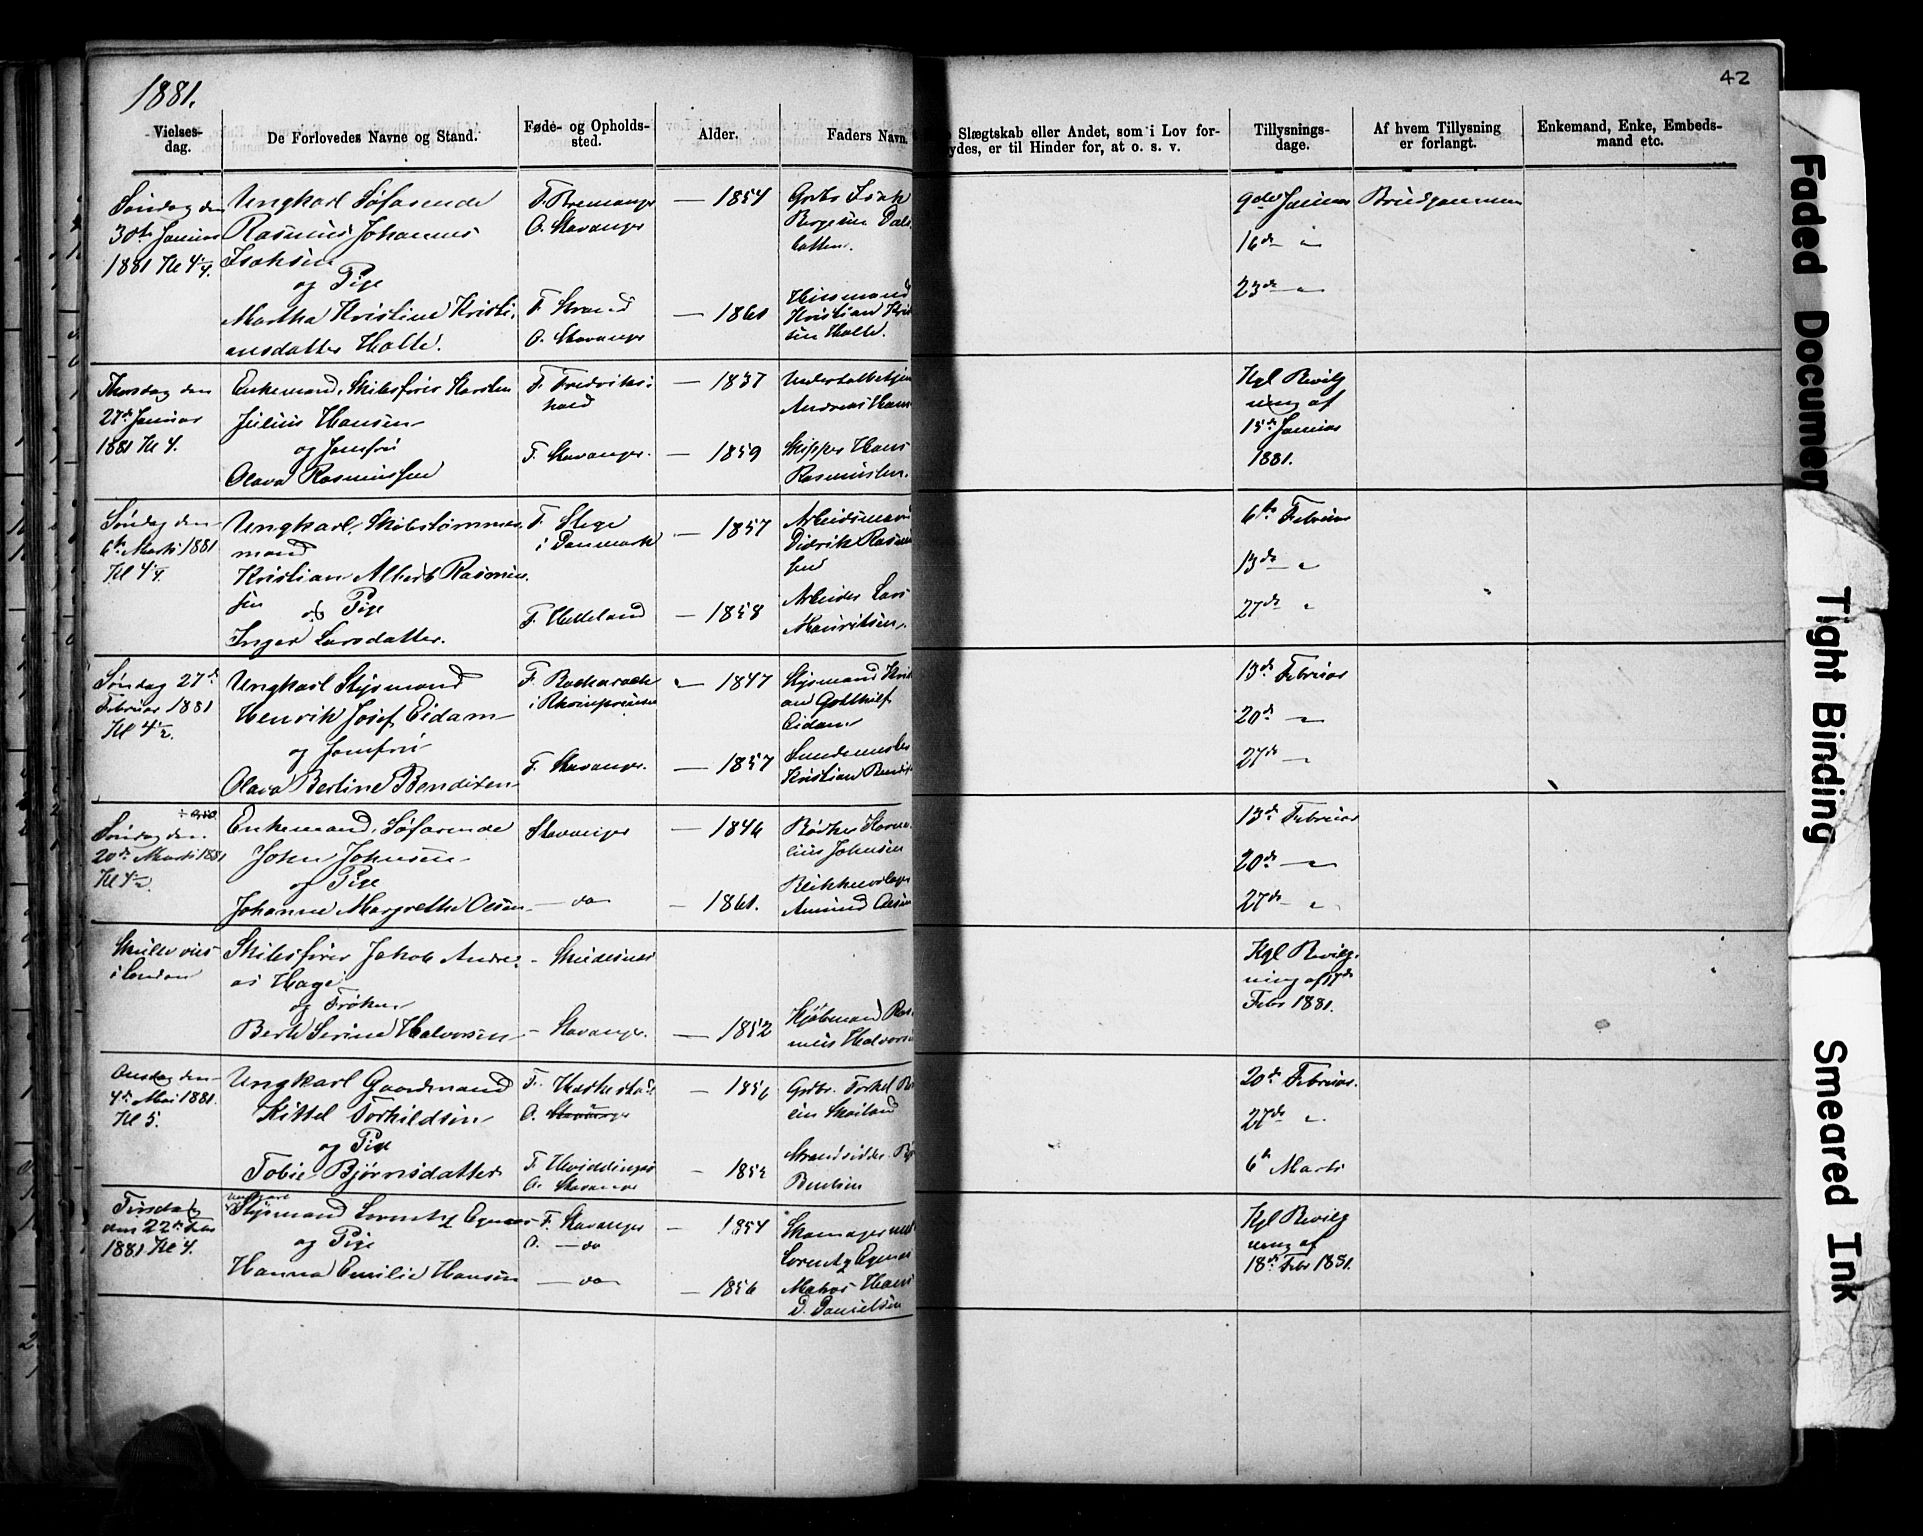 1881.
42
Vielses-
dag.
De Forlovedes Navne og Stand.
Føde- og Opholds-
sted.
Alder.
Faders Navn.
Slægtskab eller Andet, som i Lov for-
ydes, er til Hinder for, at o. s. v.
Tillysnings-
dage.
Af hvem Tillysning
er forlangt.
Enkemand, Enke, Embeds-
mand etc.
Søndag den
30te Januar
1881 Kl 4 1/4.
Ungkarl Søfarende
Rasmus Johannes
Isaksen
og Pige
Martha Kristine Kristi-
ansdatter Holte.
F. Bremanger
O. Stavanger
F. Strand
O. Stavanger
— 1854
— 1861
Gdbr Isak
Bergesen Dals-
batten.
Huusmand
Kristian Kri
sen Holte.
9de Januar
16de "
23de "
Brudgommen
Thorsdag den
27de Januar
1881 Kl 4.
Enkemand, Skibsfører Karsten
Julius Hansen
og Jomfru
Olava Rasmussen
F. Fredriks-
hald
F. Stavanger.
— 1837
— 1859
Andreas Han
Skipper Hans
Rasmussen.
Kgl Bevilg
ning af
15de Januar
1881.
Søndag den
6te Marts 1881
Kl 4 1/4.
Ungkarl, Skibstømmer-
mand
Kristian Albert Rasmus-
sen
og Pige
Inger Larsdatter.
F. Stege
i Danmark
F. Helleland
— 1857
— 1858
Arbeidsmand
Didrik Rasmu
sen
Arbeider Lars
Mauritsen.
6te Februar
13de "
27de "
Søndag 27de
Februar 1881
Kl 4 1/2.
Ungkarl Styrmand
Henrik Josef Eidam
og Jomfru
Olava Bertine Benditsen
F. Bacharach
i Rhinpreusen
F. Stavanger.
— 1847
— 1857
Styrmand Kristi
an Gotthilf
Eidam
Kristian Bendit
13de Februar
20de "
27de "
Søndag den
20de Marts 1881
Kl 4 1/2.
Enkemand, Søfarende
John Johnsen
og Pige
Johanne Margrethe Olsen
Stavanger
— do
— 1846
— 1861.
Bødker Korne-
lius Johnsen
Blikkenslager
Amund Olsen
13de Februar
20de "
27de "
Skulle vies
i London
Skibsfører Jakob Andre-
as Hage
og Frøken
Berthe Serine Halvorsen
— Skudesnes
— Stavanger.
— 1852
Kjøbmand Ras-
mus Halvorsen
Kgl Bevilg-
ning af 17de
Febr 1881.
Onsdag den
4de Mai 1881.
Kl 5.
Ungkarl Gaardmand
Kittel Torkildsen
og Pige
Tobie Bjørnsdatter
O. Stavanger
O. Stavanger
— 1856
Gdbr. Torkel
sen Skailand
Strandsidder
Bentsen
20de Februar.
27de "
6te Marts
Tirsdag
den 22de Febr
1881 Kl 4.
Ungkarl
Styrmand Lorentz Egenes
og Pige
Hanna Emilie Hansen
F. Stavanger
O. — do
— do
— 1854
— 1856
Skomagermest
Lorentz Egenes
Makor Hans
D. Danielsen
Kgl Bevilg
ning af
18de Febr 1881.
Faded Documen
Tight Binding
Smeared Ink